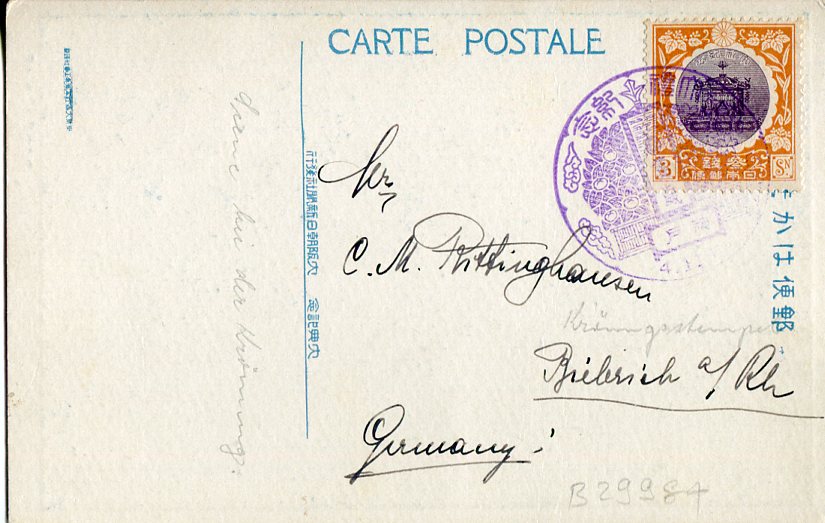 CARTE POSTALE
3 SN
参銭
Hr.
C. M. Rittinghausen
Krönungsstempel
Biebrich a/Rh
Germany
B29984
郵便はかき
大典記念 大阪朝日新聞社発行
Szene bei der Krönung.